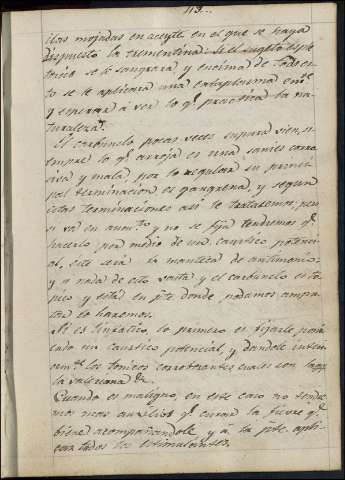 113..
las mojadas en aceyte en el que se haya
dispuesto la trementina. Si el sugeto es ple
torico se le sangrara y encima de todo es
to se le aplicara una cataplasma em.te
y esperar a ver lo q.e practica la na
turaleza.
El carbunclo pocas veces supura vien, si
empre lo q.e arroja es una sanies corro
siva y mala, por lo regular su princi
pal terminacion es gangrena, y segun
estas terminaciones asi le trataremos; pero
si va en aum.to y no se fija tendremos q.e
hacerlo por medio de un caustico potenci
al, este será la manteca de antimonio;
y si nada de esto vasta y el carbunclo es to
pico y está en p.te donde podamos ampu
tar lo haremos.
Si es sintomatico, lo primero es fijarle, poni
endo un caustico potencial, y dandole interi
orm.te los tonicos corroborantes cuales son la
la valeriana &c.
Cuando es maligno, en este caso no tendre
mos mas auxilios q.e curar la fievre q.e
biene acompañandole y á la p.te apli
car todos los estimulantes.